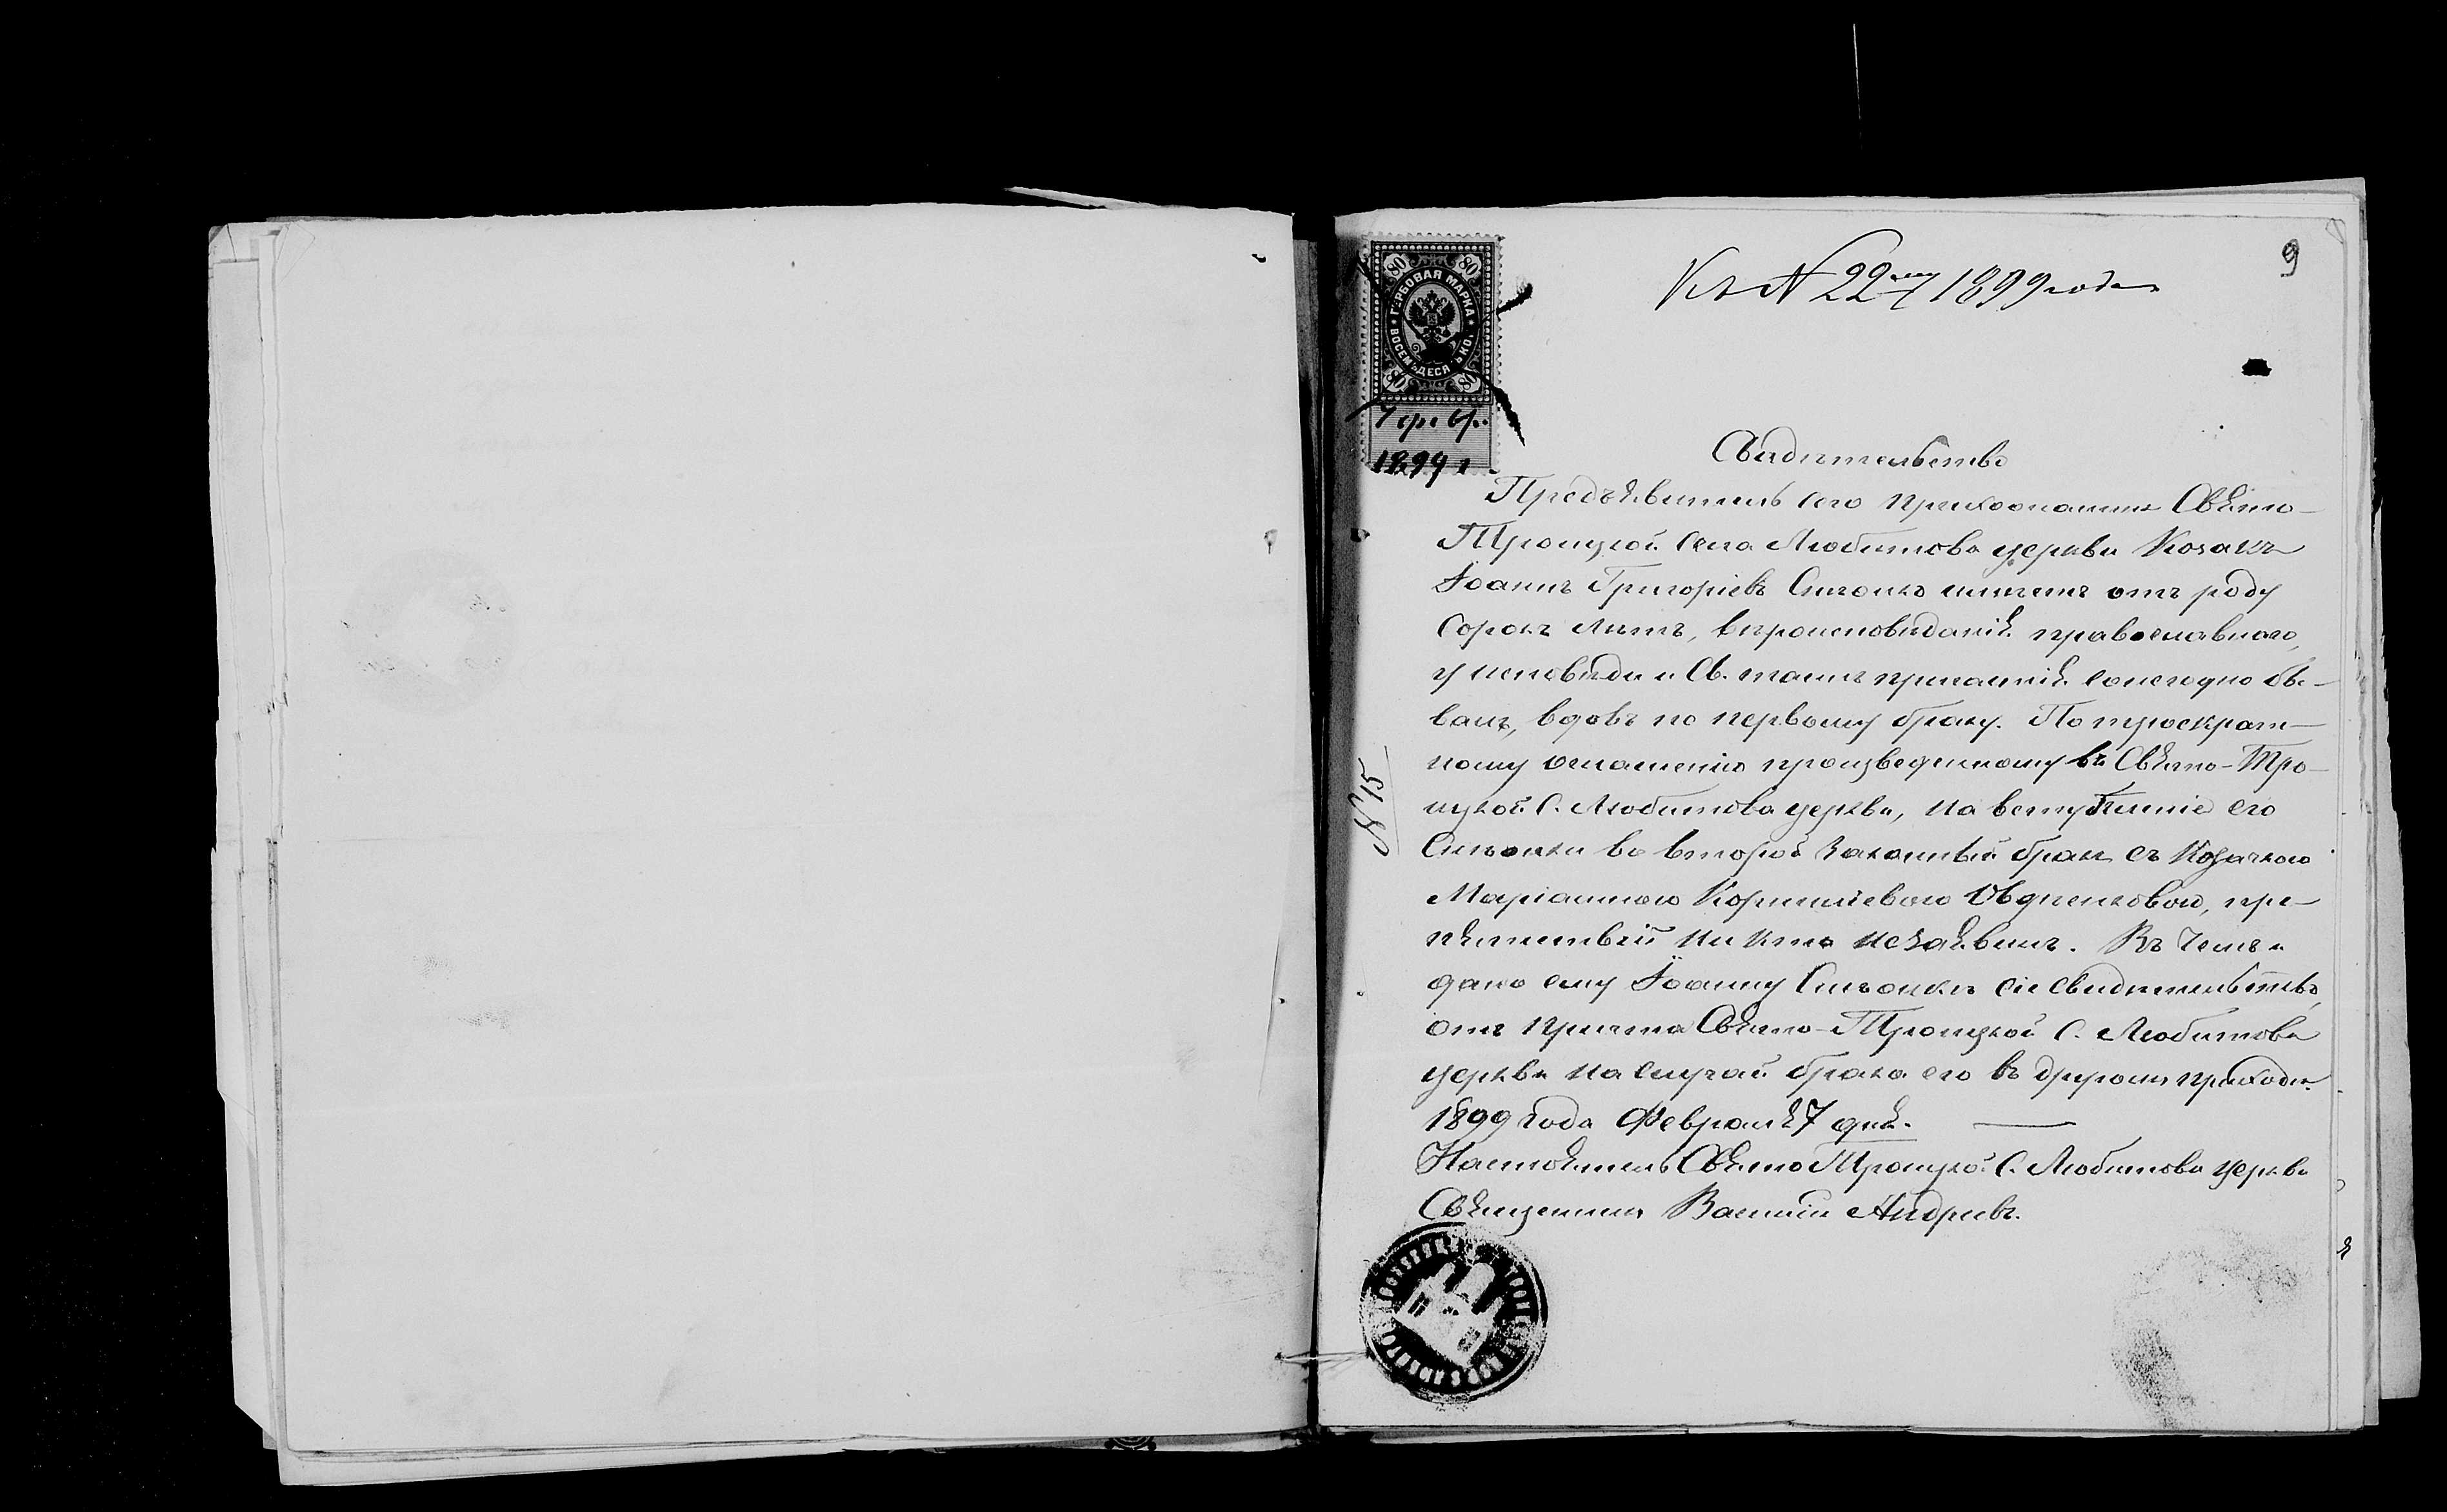 9
Къ № 22му 1899 года
80 80
ГЕРБОВАЯ МАРКА
ВОСЕМЬДЕСЯТЪ КОП.
80 80
7 февр.
1899 г.
Свидѣтельство
Предъявитель сего прихожанинъ Свято-
Троицкой села Любитова церкви Козакъ
Іоаннъ Григоріевъ имѣетъ отъ роду
сорокъ лѣтъ, вѣроисповѣданія православнаго,
у исповѣди и Св. таинъ причастія ежегодно бы-
валъ, вдовъ по первому браку. По троекрат-
ному оглашенію произведенному въ Свято-Тро-
ицкой С. Любитова церкви, на вступленіе его
во второй законный бракъ съ Козачкою
Маріанною Корниліевою пре-
пятствій ни кто не заявилъ. Въ чемъ и
дано ему Іоанну сіе свидѣтельство,
отъ причта Свято-Троицкой С. Любитова
церкви на случай брака его въ другомъ приходѣ.
1899 года Февраля 7 дня.
Настоятель Свято Троицкой С. Любитова церкви
Священникъ Василій Андріевъ.
№ 15